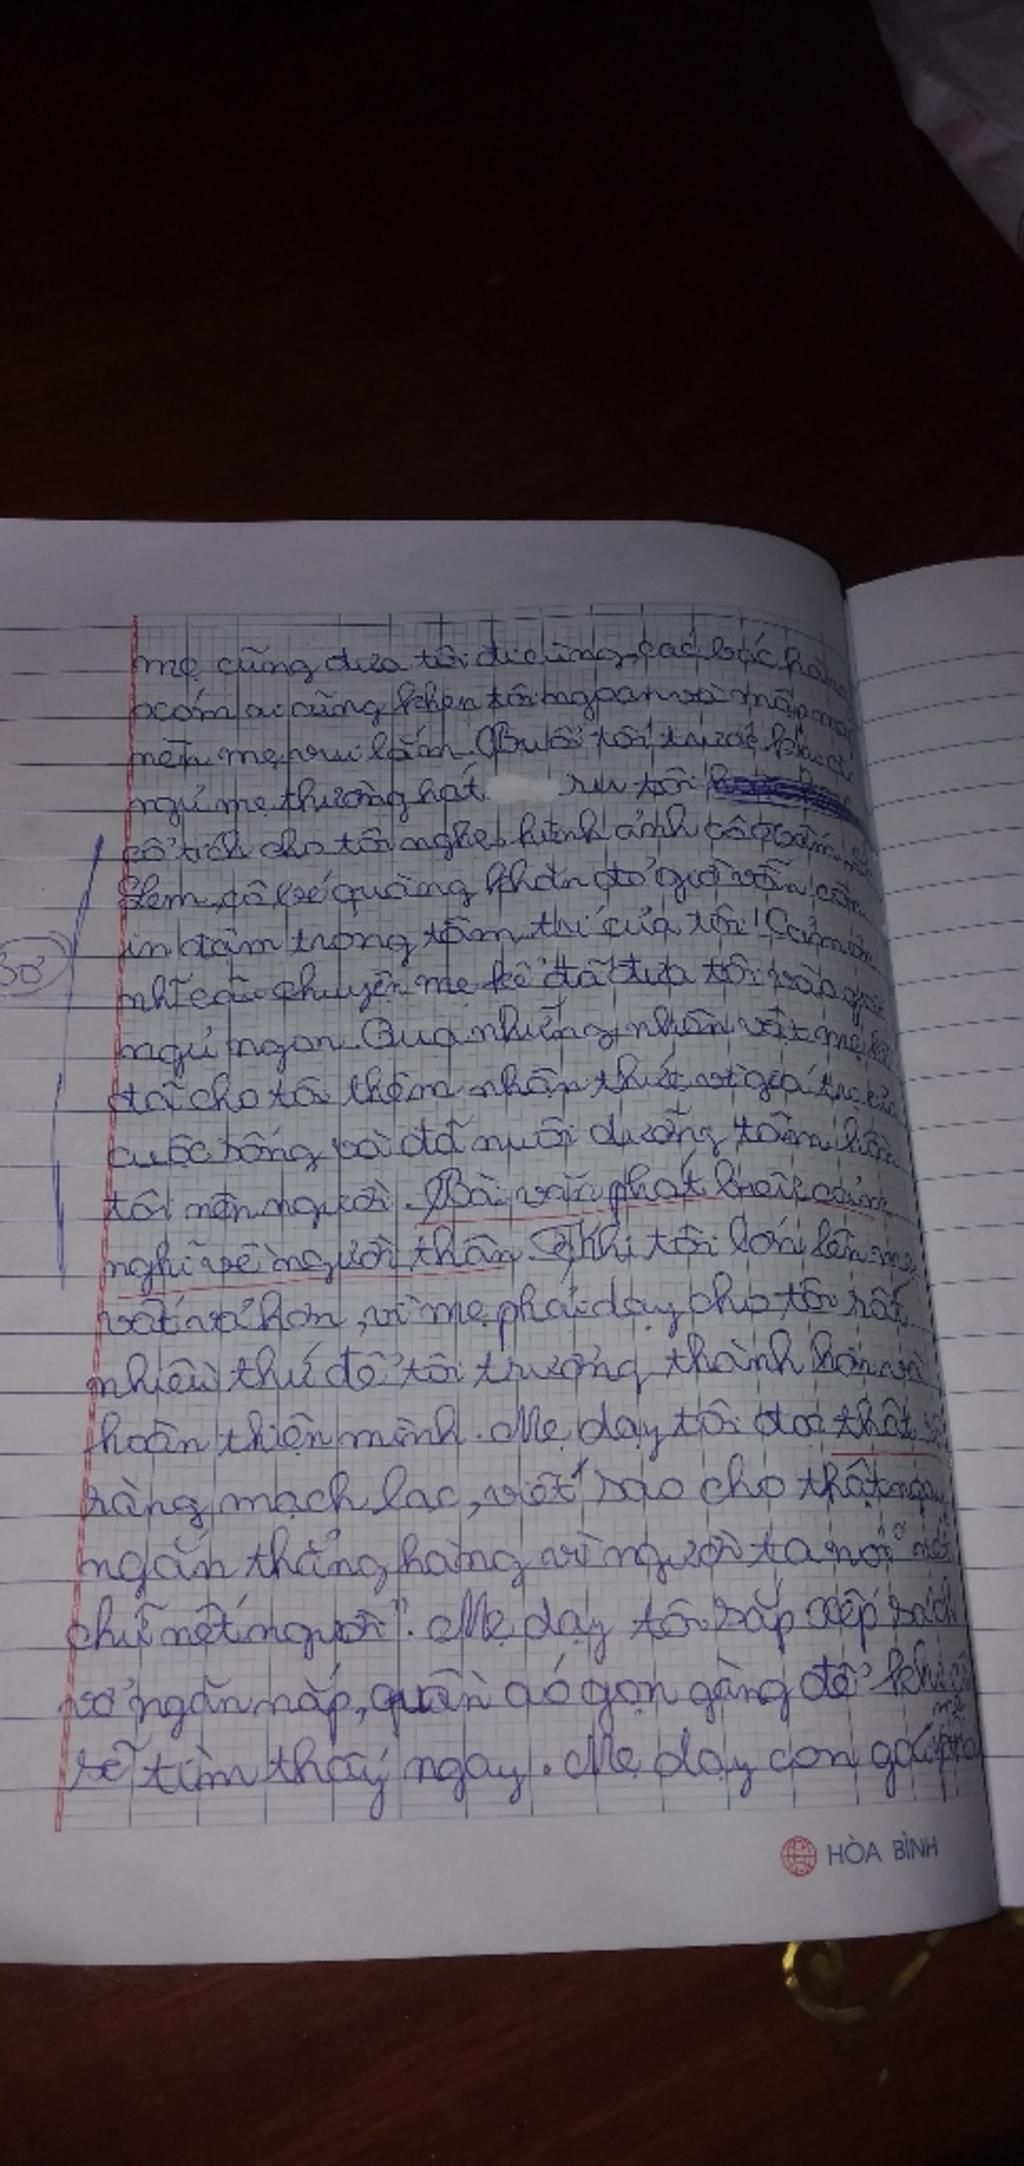 mẹ cũng đưa tôi đi cùng, các bác hàng
xóm ai cũng khen tôi ngoan và mập mạp
nên mẹ vui lắm. Buổi tối trước khi đi
ngủ mẹ thường hát ru tôi
cổ tích cho tôi nghe, hình ảnh cô tấm,
lem, cô bé quàng khăn đỏ giờ vẫn còn
in đậm trong tâm trí của tôi! Cảm ơn
nhĩ câu chuyện mẹ kể đã đưa tôi vào giấc
ngủ ngon. Qua những nhân vật mẹ kể
đã cho tôi thêm nhận thức về giá trị của
cuộc sống và đã nuôi dưỡng tâm hồn
tôi nên người. Bài văn phát biểu cảm
nghĩ về người thân. Khi tôi lớn lên mẹ
vất vả hơn, vì mẹ phải dạy cho tôi rất
nhiều thứ để tôi trưởng thành hơn và
hoàn thiện mình. Mẹ dạy tôi đọc thật rõ
ràng mạch lạc, viết sao cho thật ngay
ngắn thẳng hàng vì người ta nói nét
chữ nết người". Mẹ dạy tôi sắp xếp sách
vở ngăn nắp, quần áo gọn gàng để khi
sẽ tìm thấy ngay. Mẹ dạy con gái phải
30
HÒA BÌNH